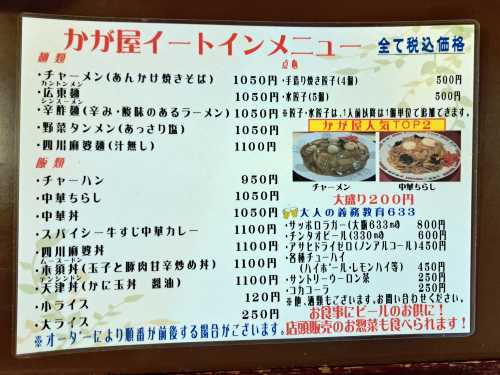 かが屋イートインメニュー 全て税込価格
麺類
・チャーメン(あんかけ焼きそば) 1050円
カントンメン
・広東麺 1050円
シンスーメン
・辛酢麺(辛み・酸味のあるラーメン) 1050円
・野菜タンメン(あっさり塩) 1050円
・四川麻婆麺(汁無し) 1100円
飯類
・チャーハン 950円
・中華ちらし 1050円
・中華丼 1050円
・スパイシー牛すじ中華カレー 1100円
・四川麻婆丼 1100円
ムースードン
・木須丼(玉子と豚肉甘辛炒め丼) 1100円
テンシンドン
・天津丼(かに玉丼 醤油) 1100円
・小ライス 120円
・大ライス 250円
※オーダーにより順番が前後する場合がございます。
点心
・手造り焼き餃子(4個) 500円
・水餃子(5個) 500円
※餃子・水餃子は、1人前以降は1個単位で追加できます。
かが屋人気TOP2
チャーメン 中華ちらし
大盛り200円
大人の義務教育633
・サッポロラガー(大瓶633ml) 800円
・チンタオビール(330ml) 600円
・アサヒドライゼロ(ノンアルコール) 450円
・各種チューハイ
(ハイボール・レモンハイ等) 450円
・サントリーウーロン茶 250円
・コカコーラ 250円
※他、酒類もございます。お問い合わせください。
お食事にビールのお供に!
店頭販売のお惣菜も食べられます!